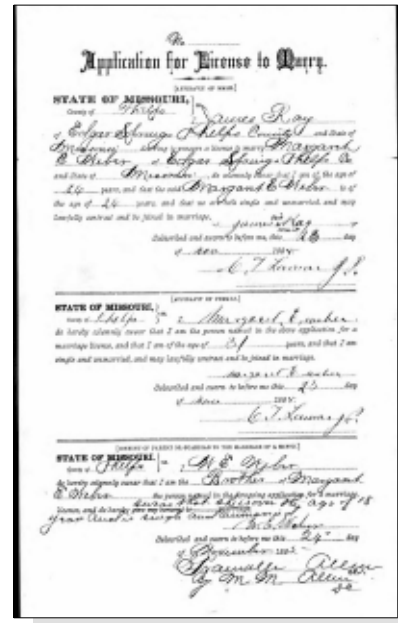 No
Application for License to Marry.
[AFFIDAVIT OF GROOM]
STATE OF MISSOURI,
County of Phelps
I, James Ray
of Edgar Springs Phelps County and State of
Missouri desiring to procure a license to marry Margaret
E Weber of Edgar Springs Phelps Co
and State of Missouri do solemnly swear that I am of the age of
24 years, and that the said Margaret E Weber is of
the age of 24 years, and that we are both single and unmarried, and may
lawfully contract and be joined in marriage.
James Ray
Subscribed and sworn to before me, this 23 day
of Nov
C. T.
STATE OF MISSOURI,
County of Phelps
I, Margaret E weber
do hereby solemnly swear that I am the person named in the above application for a
marriage license, and that I am of the age of years, and that I am
single and unmarried, and may lawfully contract and be joined in marriage.
margaret E weber
Subscribed and sworn to before me this 23 day
of Nov
C. T.
[CONSENT OF PARENT OR GUARDIAN TO THE MARRIAGE OF A MINOR]
STATE OF MISSOURI,
County of Phelps
I, M E Weber
do hereby solemnly swear that I am the Brother of Margaret
E Weber the person named in the foregoing application for a marriage
license, and do hereby
age of 18
year and is single and
Subscribed and sworn to before me this 24 day
of November
Allen
By M. M. Allen